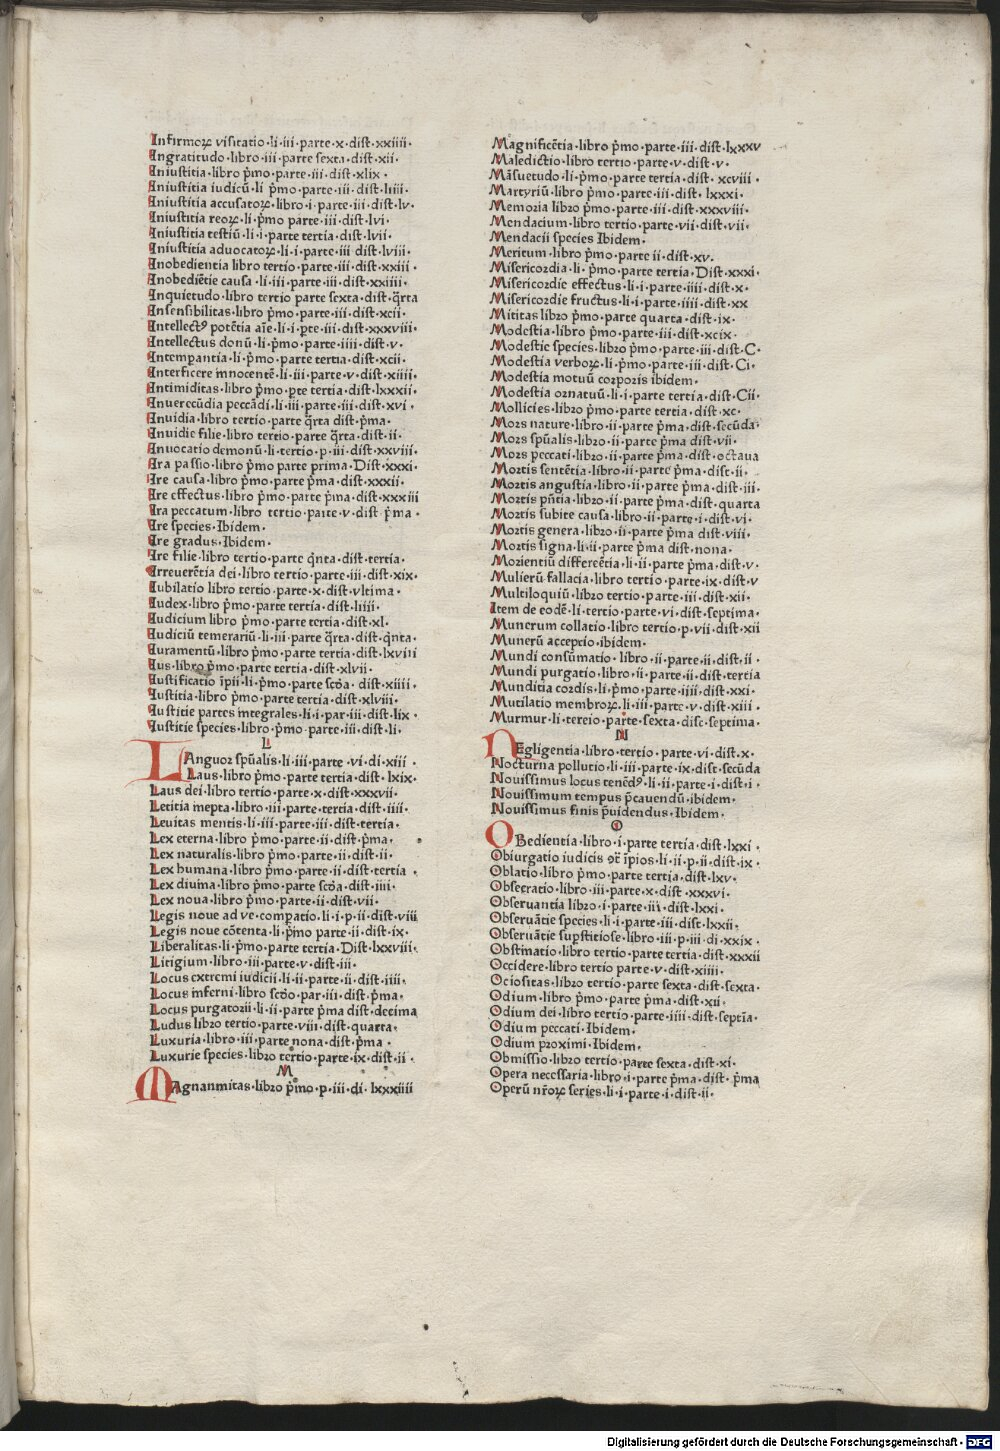 Infirmoꝝ visitatio·li·iii·parte·x·dist·xxiiii·
Ingratitudo·libro·iii·parte sexta·dist·xii·
Iniustitia·libro p̄mo·parte·iii·dist·xlix·
Iniustitia iudicū·li p̄mo·parte·iii·dist·liiii·
Iniustitia accusatoꝝ·libro·i·parte·iii·dist·lv·
Iniustitia reoꝝ·li·p̄mo parte·iii·dist·lvi·
Iniustitia testiū·li·i·parte tertia·dist·lvii·
Iniustitia aduocatoꝝ·li·i·parte·iii dist·lviii·
Inobedientia libro tertio·parte·iii·dist·xxiii·
Inobediētie causa·li·iii·parte·iii·dist·xxiiii·
Inquietudo·libro tertio parte sexta·dist·q̄rta
Insensibilitas·libro p̄mo·parte·iii·dist·xcii·
Intellectꝰ potētia aīe·li·i·pte·iii·dist·xxxviii·
Intellectus donū·li·p̄mo·parte·iiii·dist·v·
Intempantia·li·p̄mo·parte tertia·dist·xcii·
Interficere innocentē·li·iii·parte·v·dist·xiiii·
Intimiditas·libro p̄mo·pte tertia·dist·lxxxii·
Inuerecūdia peccādi·li·iii·parte·iii·dist·xvi·
Inuidia·libro tertio·parte q̄rta dist·p̄ma·
Inuidie filie·libro tertio·parte q̄rta·dist·ii·
Inuocatio demonū·li·tertio·p·iii·dist·xxviii·
Ira passio·libro p̄mo parte prima·Dist·xxxi·
Ire causa·libro p̄mo·parte p̄ma·dist·xxxii·
Ire effectus·libro p̄mo·parte p̄ma·dist·xxxiii
Ira peccatum·libro tertio·parte·v·dist p̄ma·
Ire species·Ibidem·
Ire gradus·Ibidem·
Ire filie·libro tertio·parte q̄nta·dist·tertia·
Irreuerētia dei·libro tertio·parte·iii·dist·xix·
Iubilatio libro tertio·parte·x·dist·vltima·
Iudex·libro p̄mo·parte tertia·dist·liiii·
Iudicium libro p̄mo·parte tertia·dist·xl·
Iudiciū temerariū·li·iii·parte q̄rta·dist·q̄nta·
Iuramentū·libro p̄mo·parte tertia·dist·lxviii
Ius·libro p̄mo·parte tertia·dist·xlvii·
Iustificatio īpii·li·p̄mo·parte scđa·dist·xiiii·
Iustitia·libro p̄mo·parte tertia·dist·xlviii·
Iustitie partes integrales·li·i·par·iii·dist·lix·
Iustitie species·libro·p̄mo·parte·iii·dist·li·
L
LAnguor spūalis·li·iii·parte·vi·di·xiii·
Laus·libro p̄mo·parte tertia·dist·lxix·
Laus dei·libro tertio·parte·x·dist·xxxvii·
Letitia inepta·libro·iii·parte·tertia·dist·iiii·
Leuitas mentis·li·iii·parte·iii·dist·tertia·
Lex eterna·libro p̄mo·parte·ii·dist·p̄ma·
Lex naturalis·libro p̄mo·parte·ii·dist·ii·
Lex humana·libro p̄mo·parte·ii·dist·tertia·
Lex diuina·libro p̄mo·parte scđa·dist·iiii·
Lex noua·libro p̄mo·parte·ii·dist·vii·
Legis noue ad ve·compatio·li·i·p·ii·dist·viii
Legis noue cōtenta·li·p̄mo parte·ii·dist·ix·
Liberalitas·li·p̄mo·parte tertia·Dist·lxxviii·
Litigium·libro·iii·parte·v·dist·iii·
Locus extremi iudicii·li·ii·parte·ii·dist·iiii·
Locus inferni·libro scđo·par·iii·dist·p̄ma·
Locus purgatorii·li·ii·parte p̄ma dist·decima
Ludus libro tertio·parte·viii·dist·quarta·
Luxuria·libro·iii·parte nona·dist·p̄ma·
Luxurie species·libro tertio·parte·ix·dist·ii·
M
MAgnanimitas·libro p̄mo·p·iii·di·lxxxiiii
Magnificētia·libro p̄mo·parte·iii·dist·lxxxv
Maledictio·libro tertio·parte·v·dist·v·
Māsuetudo·li·p̄mo·parte tertia·dist·xcviii·
Martyriū·libro p̄mo·parte·iii·dist·lxxxi·
Memoria libro p̄mo·parte·iii·dist·xxxviii·
Mendacium·libro tertio·parte·vii·dist·vii·
Mendacii species Ibidem·
Meritum·libro p̄mo·parte ii·dist·xv·
Misericordia·li·p̄mo·parte tertia·Dist·xxxi·
Misericordie effectus·li·i·parte·iiii·dist·x·
Misericordie fructus·li·i·parte·iiii·dist·xx
Mititas libro p̄mo·parte quarta·dist·ix·
Modestia·libro p̄mo·parte·iii·dist·xcix·
Modestie species·libro p̄mo·parte·iii·dist·C·
Modestia verboꝝ·li·p̄mo·parte·iii·dist·Ci·
Modestia motuū corporis ibidem·
Modestia ornatuū·li·i·parte tertia·dist·Cii·
Mollicies·libro p̄mo·parte tertia·dist·xc·
Mors nature·libro·ii·parte p̄ma·dist·secūda·
Mors spūalis·libro·ii·parte p̄ma dist·vii·
Mors peccati·libro·ii·parte p̄ma·dist·octaua
Mortis sentētia·libro·ii·parte p̄ma·dist·ii·
Mortis angustia·libro·ii·parte p̄ma·dist·iii·
Mortis pñtia·libro·ii·parte p̄ma·dist·quarta
Mortis subite causa·libro·ii·parte·i·dist·vi·
Mortis genera·libro·ii·parte p̄ma dist·viii·
Mortis signa·li·ii·parte p̄ma dist·nona·
Morientiū differētia·li·ii·parte p̄ma·dist·v·
Mulierū fallacia·libro tertio·parte·ix·dist·v
Multiloquiū·libro tertio·parte·iii·dist·xii·
Item de eodē·li·tertio·parte·vi·dist·septima·
Munerum collatio·libro tertio·p·vii·dist·xii
Munerū acceptio·ibidem·
Mundi consūmatio·libro·ii·parte·ii·dist·ii·
Mundi purgatio·libro·ii·parte·ii·dist·tertia
Munditia cordis·li·p̄mo·parte·iiii·dist·xxi·
Mutilatio membroꝝ·li·iii·parte·v·dist·xiii·
Murmur·li·tercio·parte·sexta·disc·septima·
N
NEgligentia·libro·tertio·parte·vi·dist·x·
Nocturna pollutio·li·iii·parte·ix·dist·secūda
Nouissimus locus tenēdꝰ·li·ii·parte·i·dist·i·
Nouissimum tempus p̄cauendū·ibidem·
Nouissimus finis p̄uidendus·Ibidem·
O
OBedientia·libro·i·parte tertia·dist·lxxi·
Obiurgatio iudicis ↄt̄ īpios·li·ii·p·ii·dist·ix·
Oblatio·libro p̄mo·parte tertia·dist·lxv·
Obsecratio·libro·iii·parte·x·dist·xxxvi·
Obseruantia libro·i·parte·iii·dist·lxxi·
Obseruātie species·li·i·parte·iii·dist·lxxii·
Obseruātie supstitiose·libro·iii·p·iii·di·xxix·
Obstinatio·libro tertio·parte tertia·dist·xxxii
Occidere·libro tertio parte·v·dist·xiiii·
Ociositas·libro tertio·parte sexta·dist·sexta·
Odium·libro p̄mo·parte p̄ma·dist·xii·
Odium dei·libro tertio·parte·iiii·dist·septīa·
Odium peccati·Ibidem·
Odium proximi·Ibidem·
Obmissio·libro tertio·parte sexta·dist·xi·
Opera necessaria·libro·i·parte p̄ma·dist·p̄ma
Operū nr̄oꝝ series·li·i·parte·i·dist·ii·
Digitalisierung gefördert durch die Deutsche Forschungsgemeinschaft - DFG